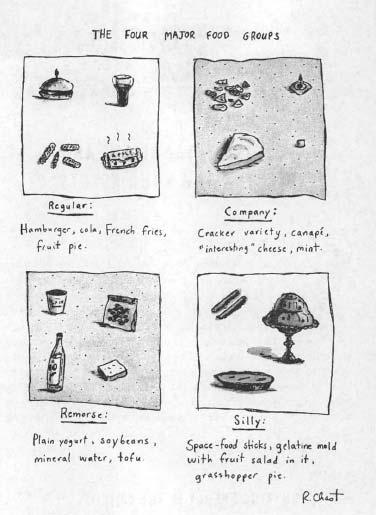 THE FOUR MAJOR FOOD GROUPS
APPLE
Regular:
Hamburger, cola, French fries,
fruit pie.
Company:
Cracker variety, canapé,
"interesting" cheese, mint.
Remorse:
Plain yogurt, soybeans,
mineral water, tofu.
Silly:
Space-food sticks, gelatine mold
with fruit salad in it,
grasshopper pie.
R. Chast